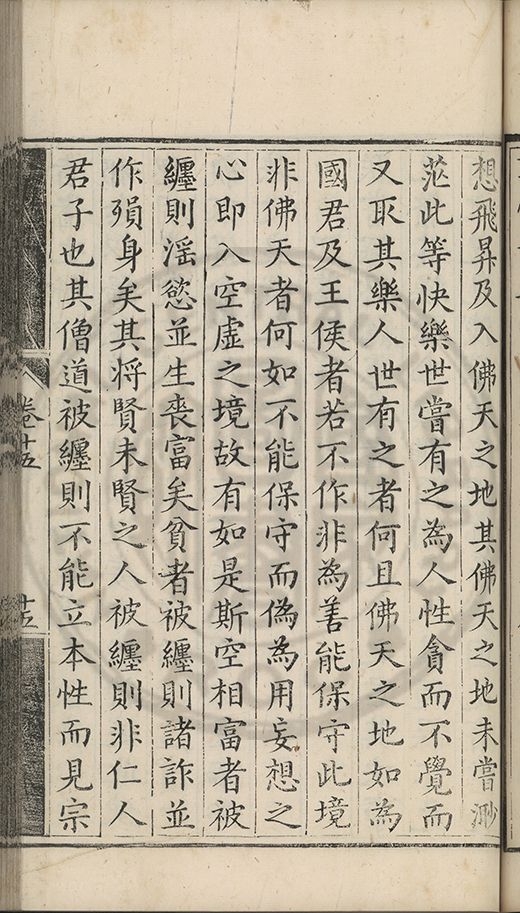 想飛昇及入佛天之地其佛天之地未嘗渺
茫此等快樂世嘗有之為人性貪而不覺而
又取其樂人世有之者何且佛天之地如為
國君及王侯者若不作非為善能保守此境
非佛天者何如不能保守而偽為用妄想之
心即入空虛之境故有如是斯空相富者被
纏則淫慾並生喪富矣貧者被纏則諸詐並
作殞身矣其將賢未賢之人被纏則非仁人
君子也其僧道被纏則不能立本性而見宗
卷十五
十五